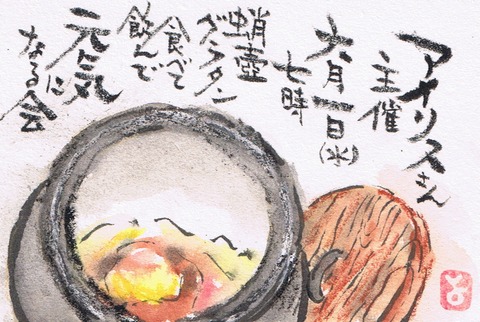 アイリスさん
主催
六月一日(水)
七時
蛸壺
グラタン
食べて
飲んで
元気
に
なる会
よ